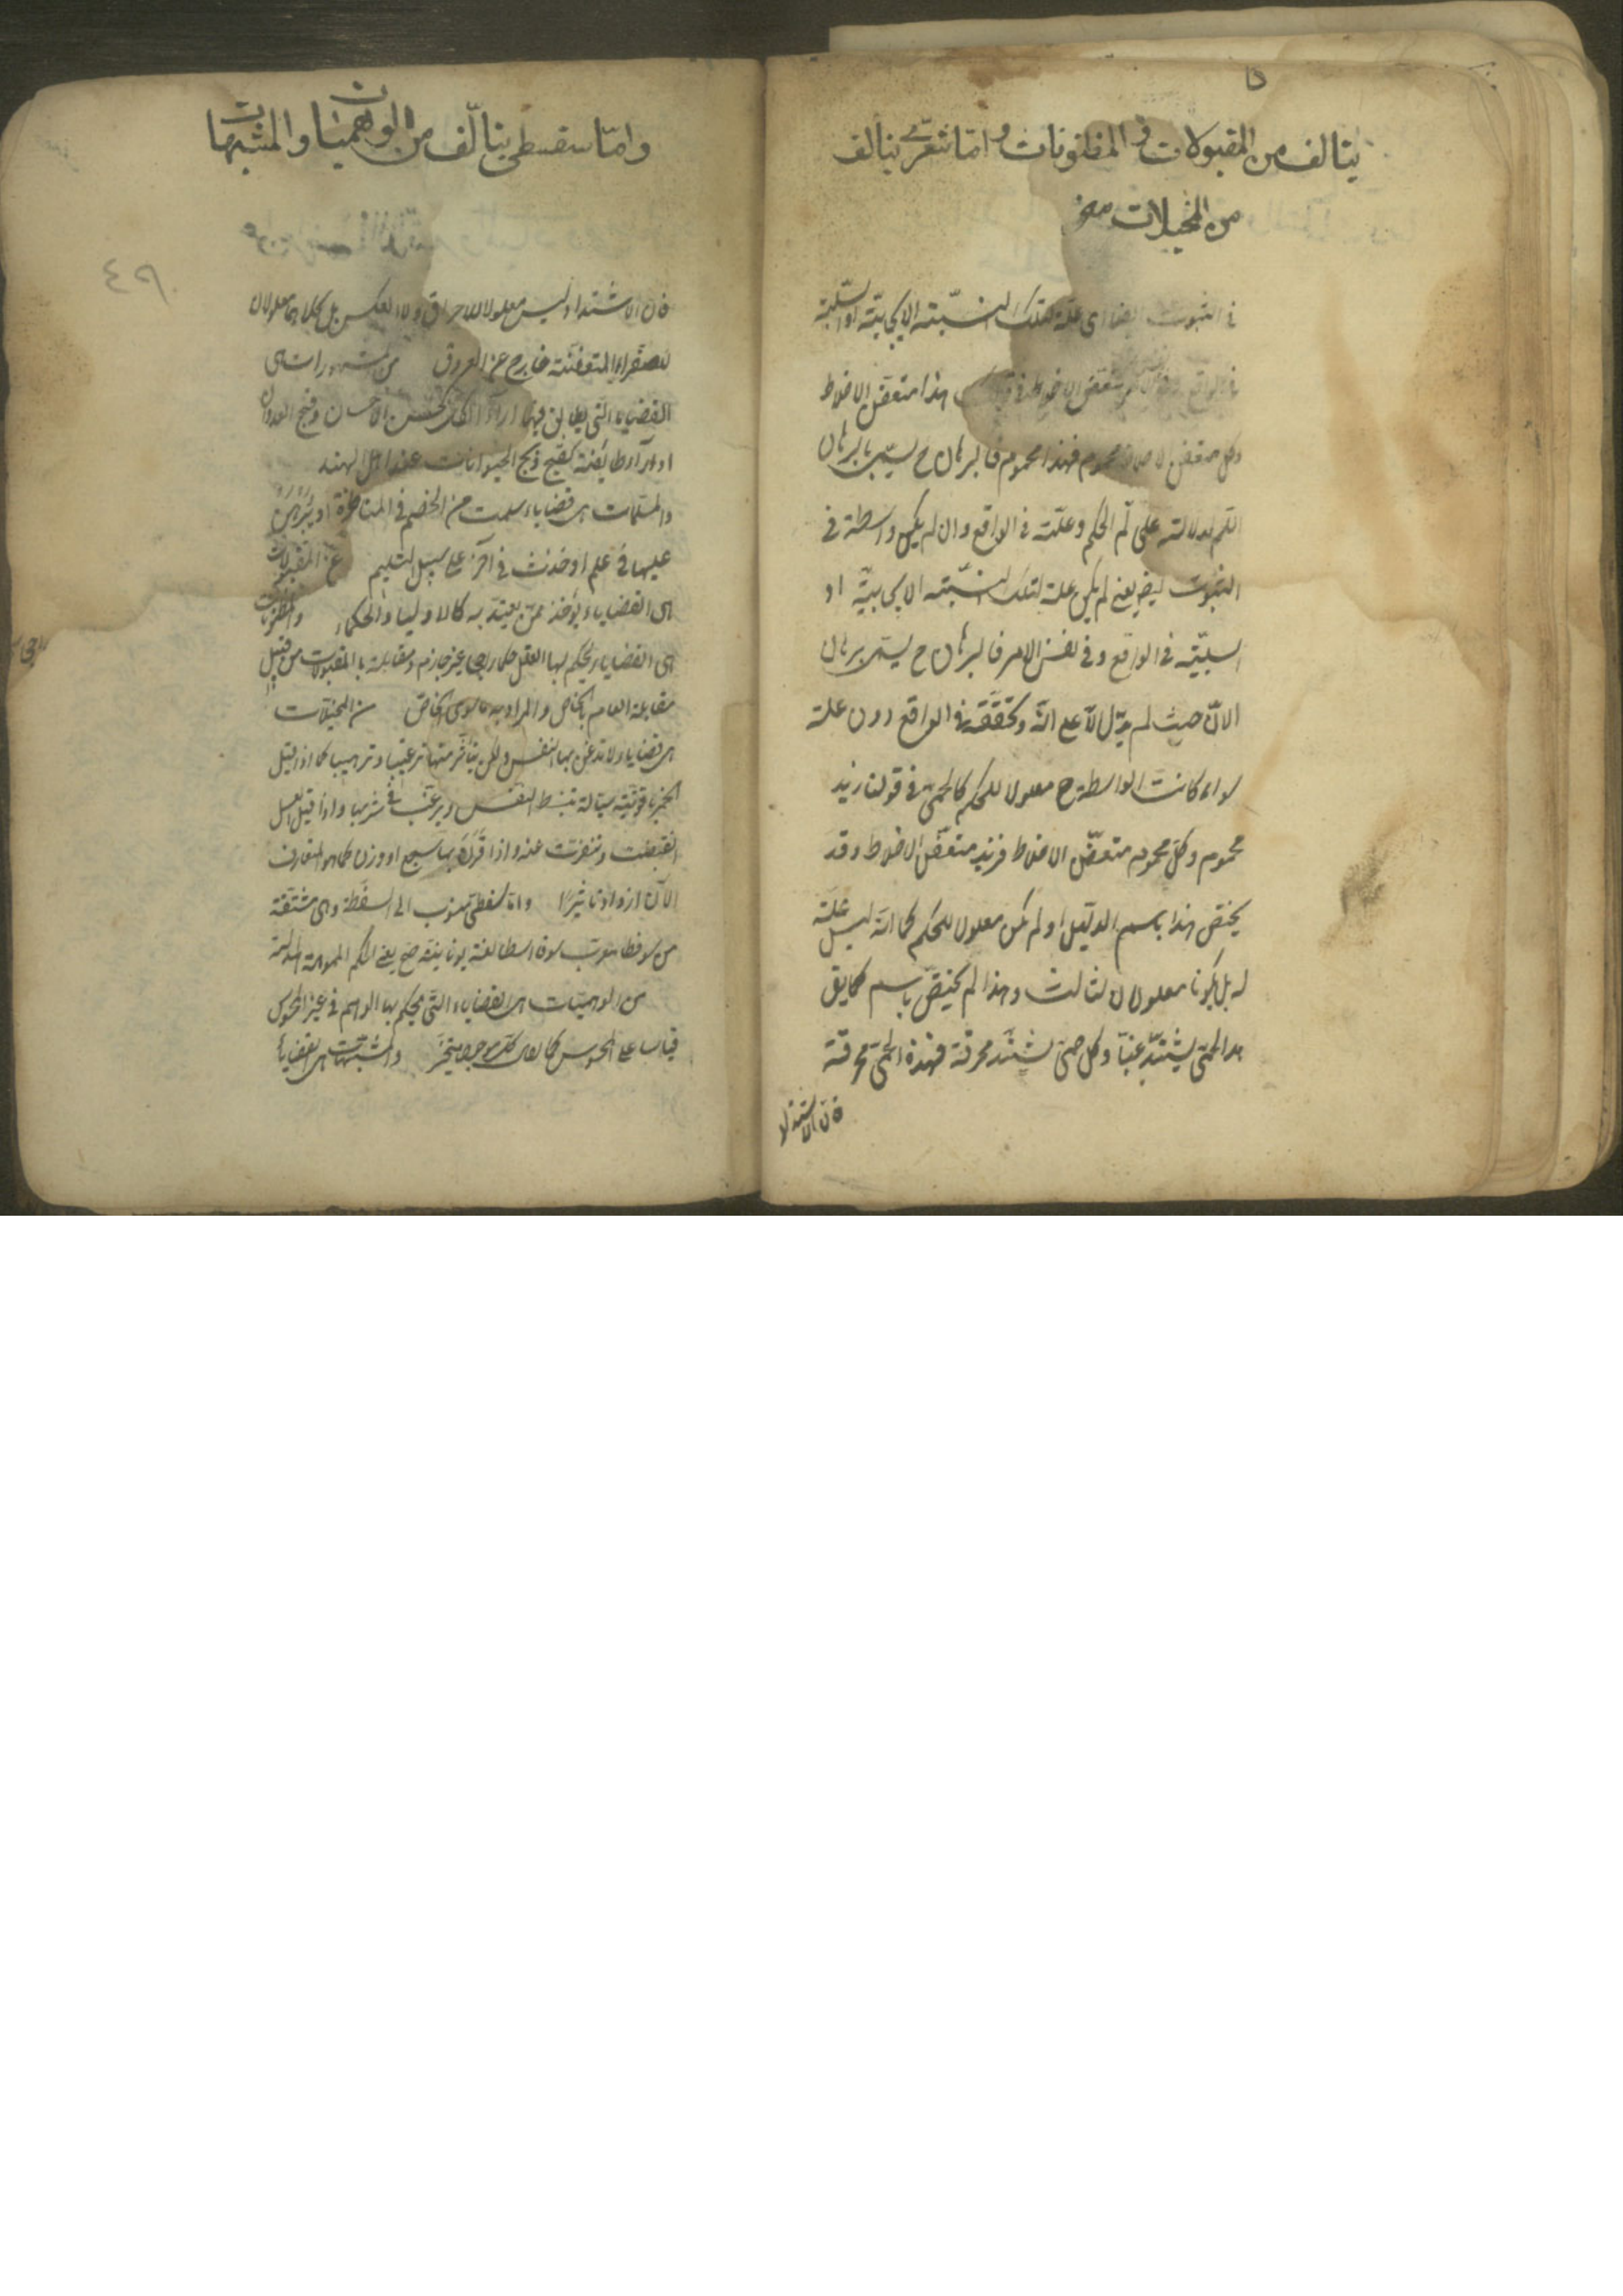 يتالف من المقبولات والمظنونات واما شعري يتالف
من المخيلات
في الثبوت ايضا اى علة لتلك النسبة الايجابية او السلبية
في الواقع متعفن الاخلاط في هذا متعفن الاخلاط
وكل متعفن الاخلاط محموم فهذا محموم فالبرهان ح يسمى ببرهان
اللم لدلالته على لم الحكم وعلته في الواقع وان لم يكن واسطة في
الثبوت يعنى لم يكن علة لتلك النسبة الايجابية او
السلبية في الواقع وفي نفس الامر فالبرهان ح يسمى برهان
الان حيث لم يدل الا على انه وتحققه في الواقع دون علته
سواء كانت الواسطة ح معلولا للحكم كالحمى في قولنا زيد
محموم وكل محموم متعفن الاخلاط فزيد متعفن الاخلاط وقد
يختص هذا باسم الدليل او لم يكن معلولا للحكم كما انه ليس علة
له بل يكونا معلولان لثالث وهذا لم يختص باسم كما يق
هذا الحمى يشتد غبا وكل حمى يشتد محرقة فهذه الحمى محرقة
فان الاشتداد
واما سفسطى يتالف من الوهميات والمشبهات
فان الاشتداد ليس معلولا للاحراق ولا العكس بل كلاهما معلولان
للصفراء المتعفنة خارج عن العروق من المشهورات هى
القضايا التى يطابق فيها اراء الكل كحسن الاحسان وقبح العدوان
او اراء طائفة كقبح ذبح الحيوانات عند اهل الهند
والمسلمات هى قضايا سلمت من الخصم في المناظرة او يبرهن
عليها في علم اوخذت في آخر على سبيل التسليم من المقبولات
هى القضايا يؤخذ ممن يعتقد به كالاولياء والحكماء والمظنونات
هى القضايا يحكم بها العقل حكما راجحا غير جازم ومقابلته بالمقبولات من قبيل
مقابلة العام بالخاص والمراد به ما سوى الخاص من المخيلات
هى قضايا لا تذعن بها النفس ولكن يتأثر منها ترغيبا وترهيبا كما اذا قيل
الخمر ياقوتية سيالة تنبسط النفس ويرغب في شربها واذا قيل العسل
انقبضت وتنفرت عنه واذا قرن بها سجع او وزن كما هو المتعارف
الآن ازداد تاثيرا واما سفسطى منسوب الى السفسطة وهى مشتقة
من سوفسطا معرب سوفا اسطا لغة يونانية يعنى الحكم المموهة المدلسة
من الوهميات هى القضايا التى يحكم بها الوهم في غير المحسوس
قياسا على المحسوس كما يقال كل موجود متحيز والمشبهات هى القضايا